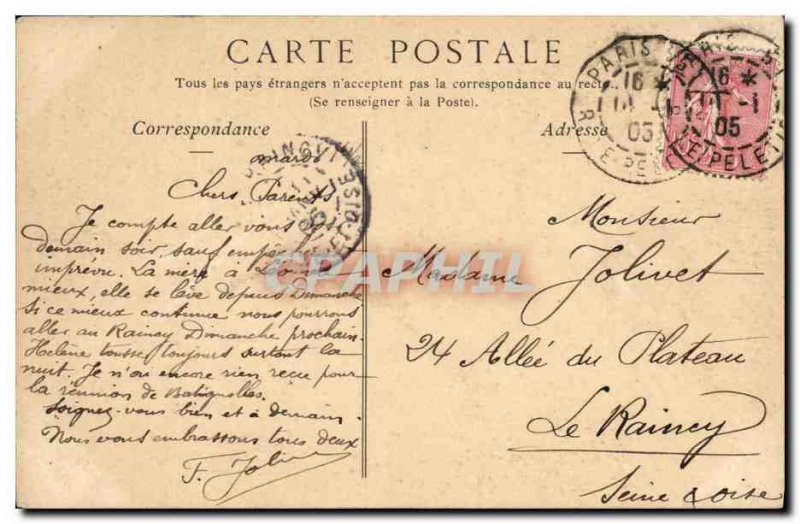 CARTE POSTALE
Tous les pays étrangers n'acceptent pas la correspondance au recto
(Se renseigner à la Poste).
Correspondance
Adresse
PARIS
16 *
05
R. LE PELETIER
mardi
Chers Parents
Je compte aller vous
demain soir, sauf
imprévu. La mère à
mieux, elle se lève depuis Dimanche
si ce mieux continue nous pourrons
aller au Raincy Dimanche prochain.
Hélène tousse toujours surtout la
nuit. Je n'ai encore rien reçu pour
la réunion de Batignolles.
Soignez-vous bien et à demain
Nous vous embrassons tous deux
F. Jolivet
Monsieur
Madame Jolivet
24 Allée du Plateau
Le Raincy
Seine & Oise
CPAPHIL